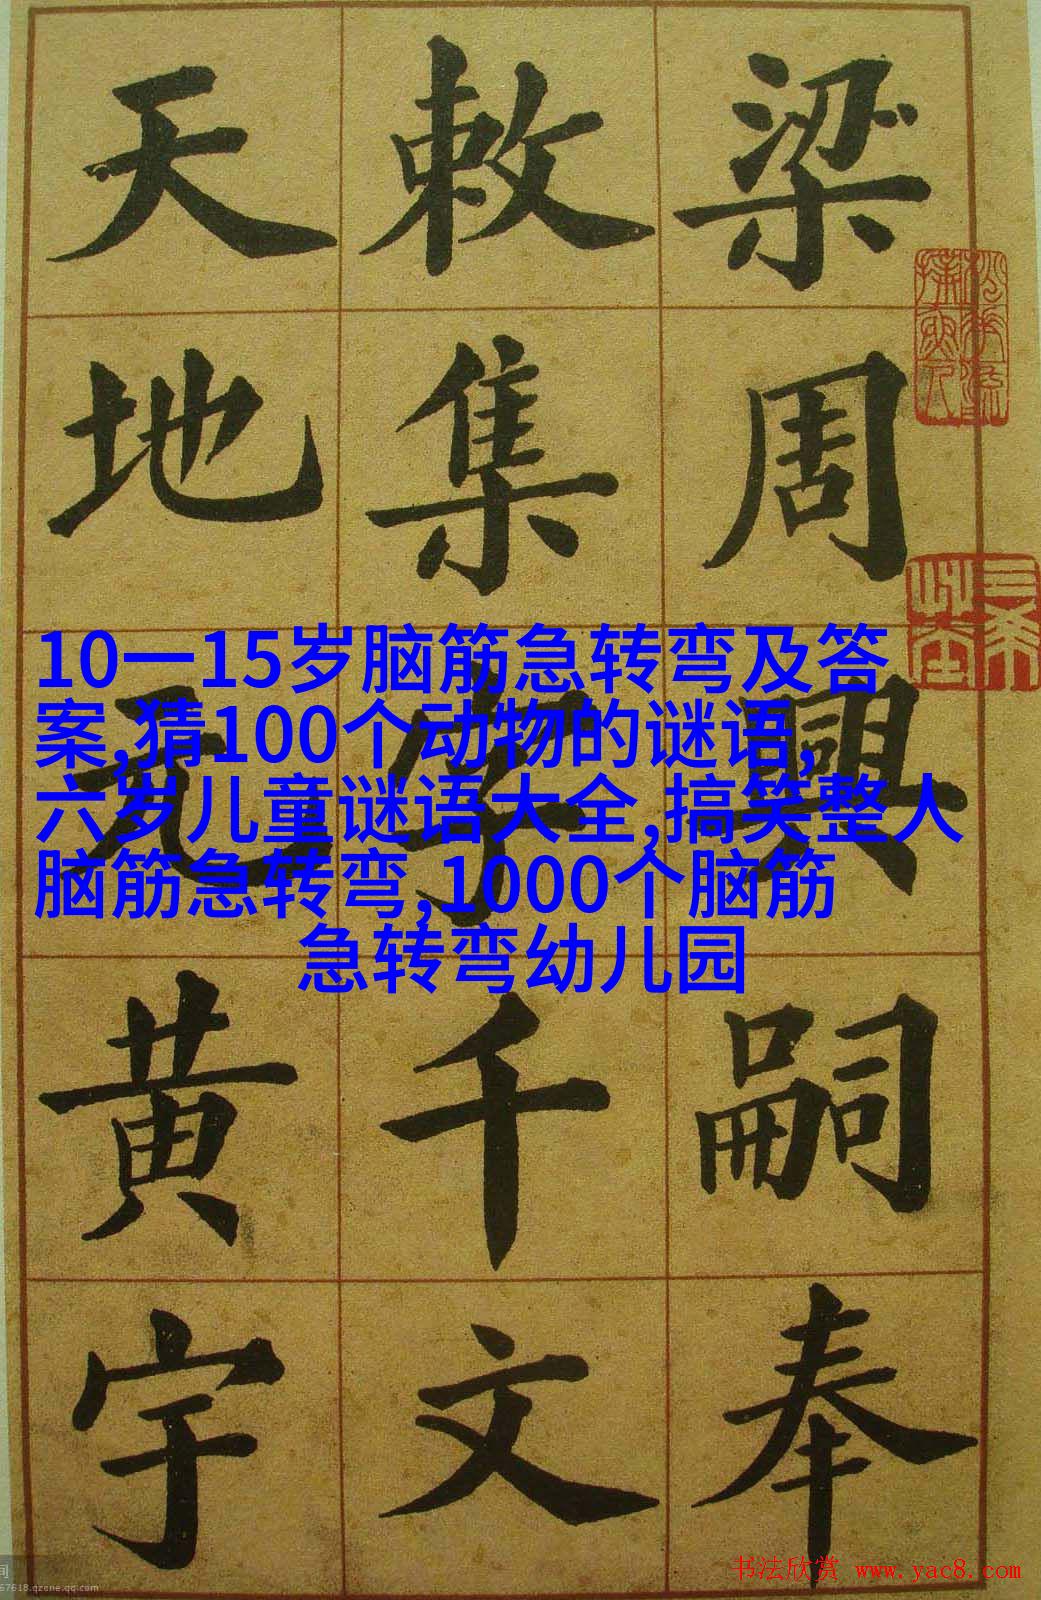 梁周興嗣奉
敕集字千文
天地元黄宇
10一15岁脑筋急转弯及答
案,猜100个动物的谜语,
六岁儿童谜语大全,搞笑整人
脑筋急转弯,1000个脑筋
急转弯幼儿园
书法欣赏 www.yac8.com
间
67618.qzone.qq.com